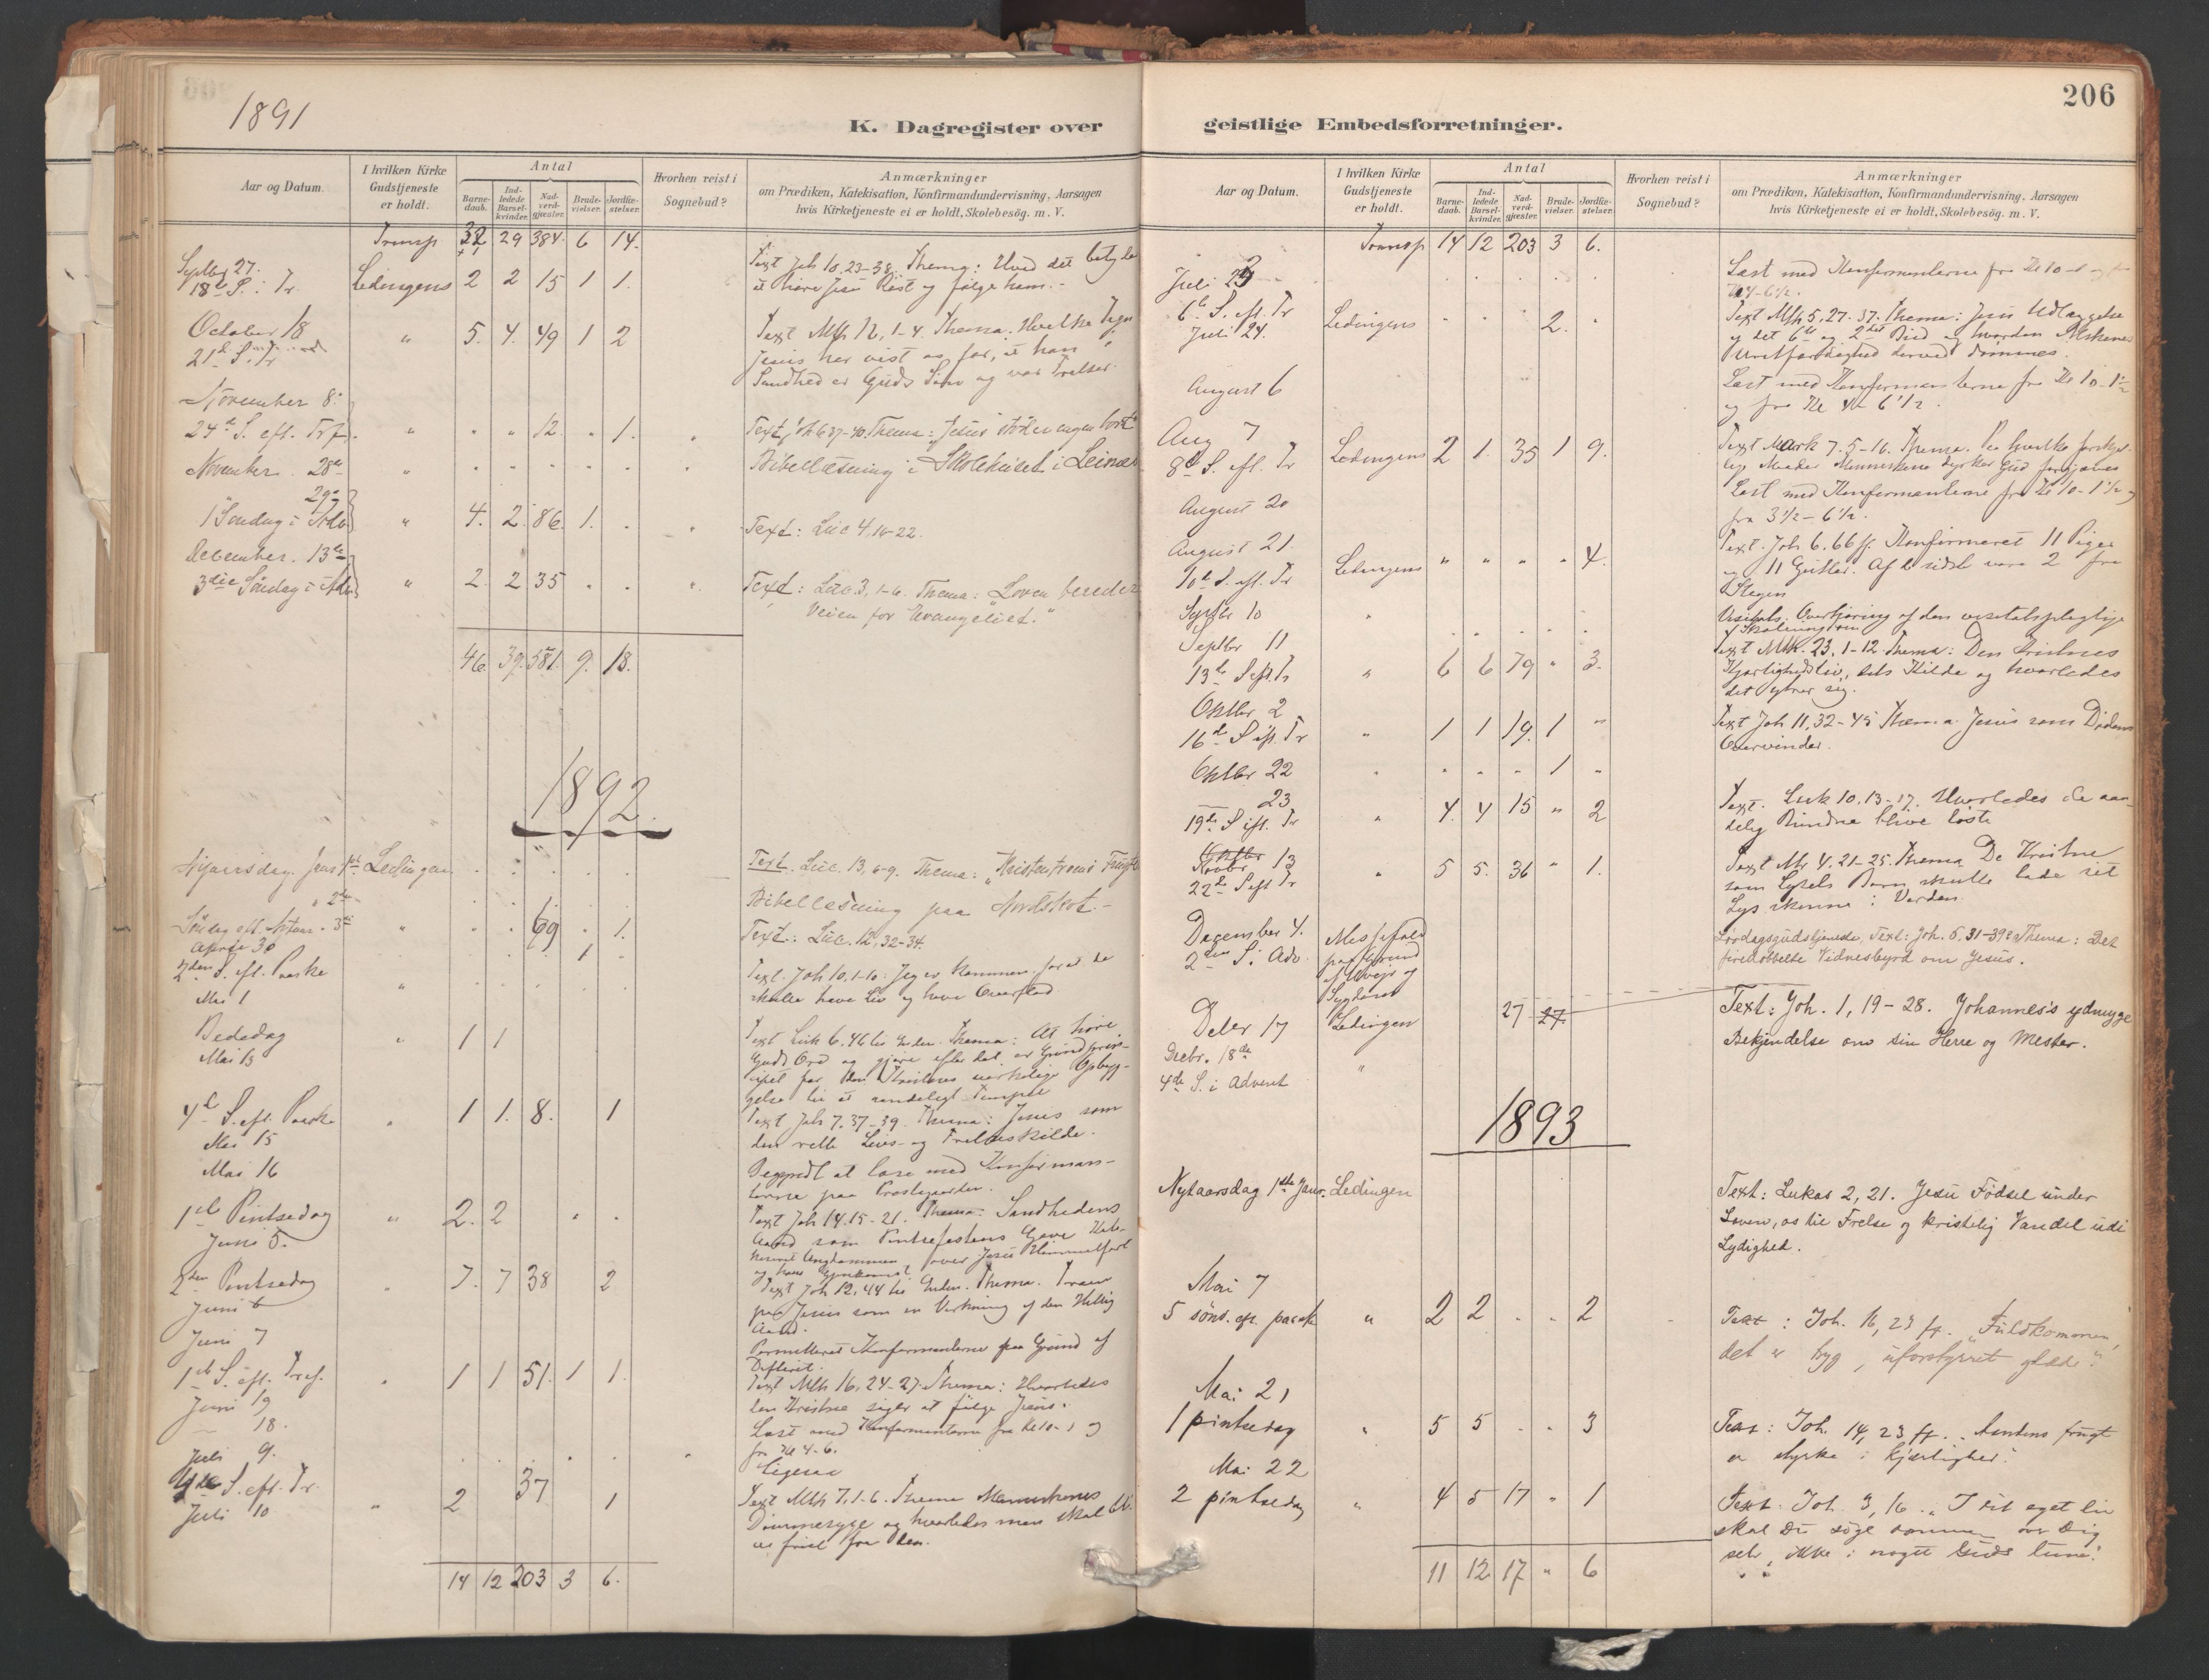 1891
206
K. Dagregister over
geistlige Embedsforretninger.
Aar og Datum.
I hvilken Kirke Gudstjeneste er holdt.
Antal
Barne-daab.
Ind-ledede Barsel-kvinder.
Nad-verd-gjæster.
Brude-vielser.
Jordfæ-stelser.
Hvorhen reist i Sognebud?
Anmærkninger
om Prædiken, Katekisation, Konfirmandundervisning, Aarsagen
hvis Kirketjeneste ei er holdt, Skolebesög. m. V.
Transp 32 29 384. 6 14.
Septbr 27.
18de S. i Tr. Lødingens 2 2 15 1 1. Text Joh 10.23-38. Thema: Hvad det betyder
at høre Jesu Røst og følge ham.-
October 18
21de S. Tr " 5. 4. 49 1 2 Text Mth 12, 1-4. Thema. Hvilke Tegn
Jesus har vist os for, at han
Sandhed er Guds Søn og vor Frelser.
November 8.
24de S. eft. Trf. " " " 12. " 1. " Text, Joh 6 37-40. Thema: "Jesus støder ingen bort"
November 28de " Bibellæsning i Skolehuset i Leines
29de
1 Søndag i Adv " 4. 2. 86. 1. . " Text: Luc 4, 16-22.
December. 13de
3die Søndag i Adv " 2. 2 35 . . " Text: Luc. 3, 1-6. Thema: Loven bereder
Veien for Evangeliet."
46. 39. 581. 9. 18.
1892.
Nyaarsdag. Januar 1st Lødingen Text. Luc. 13, 6-9. Thema: "Kristentroens Frugt
" 2den Bibellæsning paa Nordskot.-
Søndag eft. Nytaar. 3de " 69 . 1. Text: Luc. 12, 32-34.
April 30 1
2den S. eft. Paaske Text. Joh 10.1-10: Jeg er kommen for at de
Mai 1 " skulle have Liv og have Overflod
Bededag " 1 1 Text Luk 6.46 til Enden. Thema: At høre
Mai 13 Guds Ord og gjøre efter det er Grundprin-
cipet for den Kristnes aandelige Opbyg-
gelse til et aandeligt Tempel
4de S. eft. Paaske " 1 1. 8. 1 Text Joh 7.37-39. Thema: Jesus som
Mai 15 den rette Livs- og Frelseskilde.
Mai 16 Begyndt at læse med Konfirman-
terne paa Prestegaarden.
1ste Pintsedag " 2. 2 . . Text Joh 14.15-21. Thema: Sandhedens
Juni 5. Aand som Pintsefestens Gave
2den Pintsedag " 7. 7 38 2 Text Joh 12, 44 til Enden. Thema. Troen
Juni 6 paa Jesus som en Virkning af den Hellig
Aand.
Juni 7 Permitteret Konfirmanterne paa Grund af
Difterit.
1ste S. eft. Tref. " 1 1 51. 1 1. Text Mth 16, 24-27. Thema: Hvorledes
Juni 19 den Kristne siger at følge Jesus.
18. Læst med Konfirmanterne fra Kl 10-1 og
fra Kl 4-6.
Juli 9. Ligesaa
4de S. eft. Tr. " 2 37 1 Text Mth 7.1-6. Thema Menneskenes
Juli 10 Dømmesyge og hvorledes man skal bli-
ve friet fra den.
14 12 203 3 6.
Aar og Datum.
I hvilken Kirke Gudstjeneste er holdt.
Antal
Barne-daab.
Ind-ledede Barsel-kvinder.
Nad-verd-gjæster.
Brude-vielser.
Jordfæ-stelser.
Hvorhen reist i Sognebud?
Anmærkninger
om Prædiken, Katekisation, Konfirmandundervisning, Aarsagen
hvis Kirketjeneste ei er holdt, Skolebesög. m. V.
Transp 14 12 203 3 6.
Juli 23 Læst med Konfirmanterne fra Kl 10-1 og fra
Kl 4-6 1/2.
6te S. eft. Tr Lødingens " " " 2. " Text Mth 5, 27-37. Thema: Jesu Udlæggelse
Juli 24. af det 6te og 2det Bud og hvordan
Uretfærdighed derved dømmes.
August 6 Læst med Konfirmanterne fra Kl 10-1 1/2
og fra Kl 4-6 1/2.
Aug 7
8de S. eft. Tr Lødingens 2 1. 35 1 9. Text Mark 7.5-16. Thema. Paa hvilke forskjel-
lige Maader Menneskene dyrker Gud forgjæves
August 20 Læst med Konfirmanterne fra Kl 10-1 1/2 og
fra 3 1/2-6 1/2.
August 21.
10de S. eft. Tr Lødingens " " " " 4. Text. Joh 6.66 ff. Konfirmeret 11 Piger
og 11 Gutter. Af de sidste vare 2 fra
Stegen
Septbr 10 Visitats. Overhøring af den visitatspligtige
Skoleungdom
Septbr 11
13de S eft. Tr " 6 6 79 " 3. Text Mth. 23, 1-12. Thema: Den Kristnes
Kjærlighedsliv, dets Kilde og hvorledes
det ytrer sig.
Oktbr 2
16de S. eft. Tr " 1 1 19. 1 " Text Joh 11, 32-45 Thema Jesus som Dødens
Overvinder.
Oktbr 22 " " " " 1 "
23
19de S eft. Tr " 4. 4 15 " 2 Text. Luk 10.13-17. Hvorledes de aan-
delig Bundne blive løste
Oktbr
Novbr 13
22de S eft Tr " 5 5. 36 " 1. Text Mr 4.21-25. Thema De Kristne
som Lysets Børn skulle lade sit
Lys skinne i Verden.
December 4.
2den S. i Adv. Messefald
paa Grund
af Uveir og
Sygdom Lørdagsgudstjeneste, Text: Joh. 5.31-39. Thema: Det
firedobbelte Vidnesbyrd om Jesus.
Decbr 17 Lødingen 27 27. Text: Joh. 1, 19-28. Johannes's ydmyge
Decbr. 18de Bekjendelse om sin Herre og Mester.
4de S. i Advent "
1893
Nytaarsdag 1ste Janr. Lødingen Text: Lukas 2, 21. Jesu Fødsel under
Loven, os til Frelse og kristelig Vandel udi
Lydighed.
Mai 7
5 sønd. eft. paask " 2 2 . . 2 Text: Joh. 16, 23 ff. "Fuldkommen,
det er tryg, uforstyrret glæde."
Mai 21
1 pintsedag " 5 5 . . 3 Text: Joh. 14, 23 ff. "Aandens frugt
er styrke i kjærlighed."
Mai 22
2 pintsedag " 4 5 17 " 1 Text. Joh. 3, 16. "I dit eget liv
skal du søge dommen over dig
selv, ikke i noget Guds lune."
11 12 17 " 6